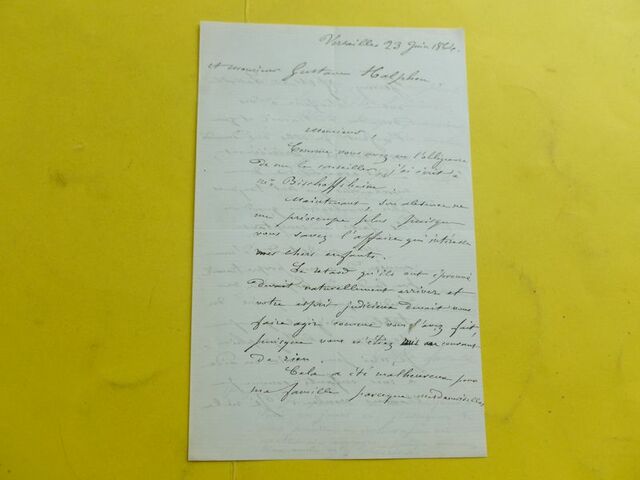 Versailles 23 Juin 1864.
à Monsieur Gustave Halphen.
Monsieur,
Comme vous avez eu l'obligeance
de me le conseiller, j'ai écrit à
Mr Bischoffsheim.
Maintenant, son absence ne
me préoccupe plus puisque
vous savez l'affaire qui intéresse
mes chers enfants.
Le retard qu'ils ont éprouvé
devait naturellement arriver et
votre esprit judicieux devait vous
faire agir comme vous l'avez fait,
puisque vous n'étiez au courant
de rien.
Cela a été malheureux pour
ma famille parceque mesdemoiselles